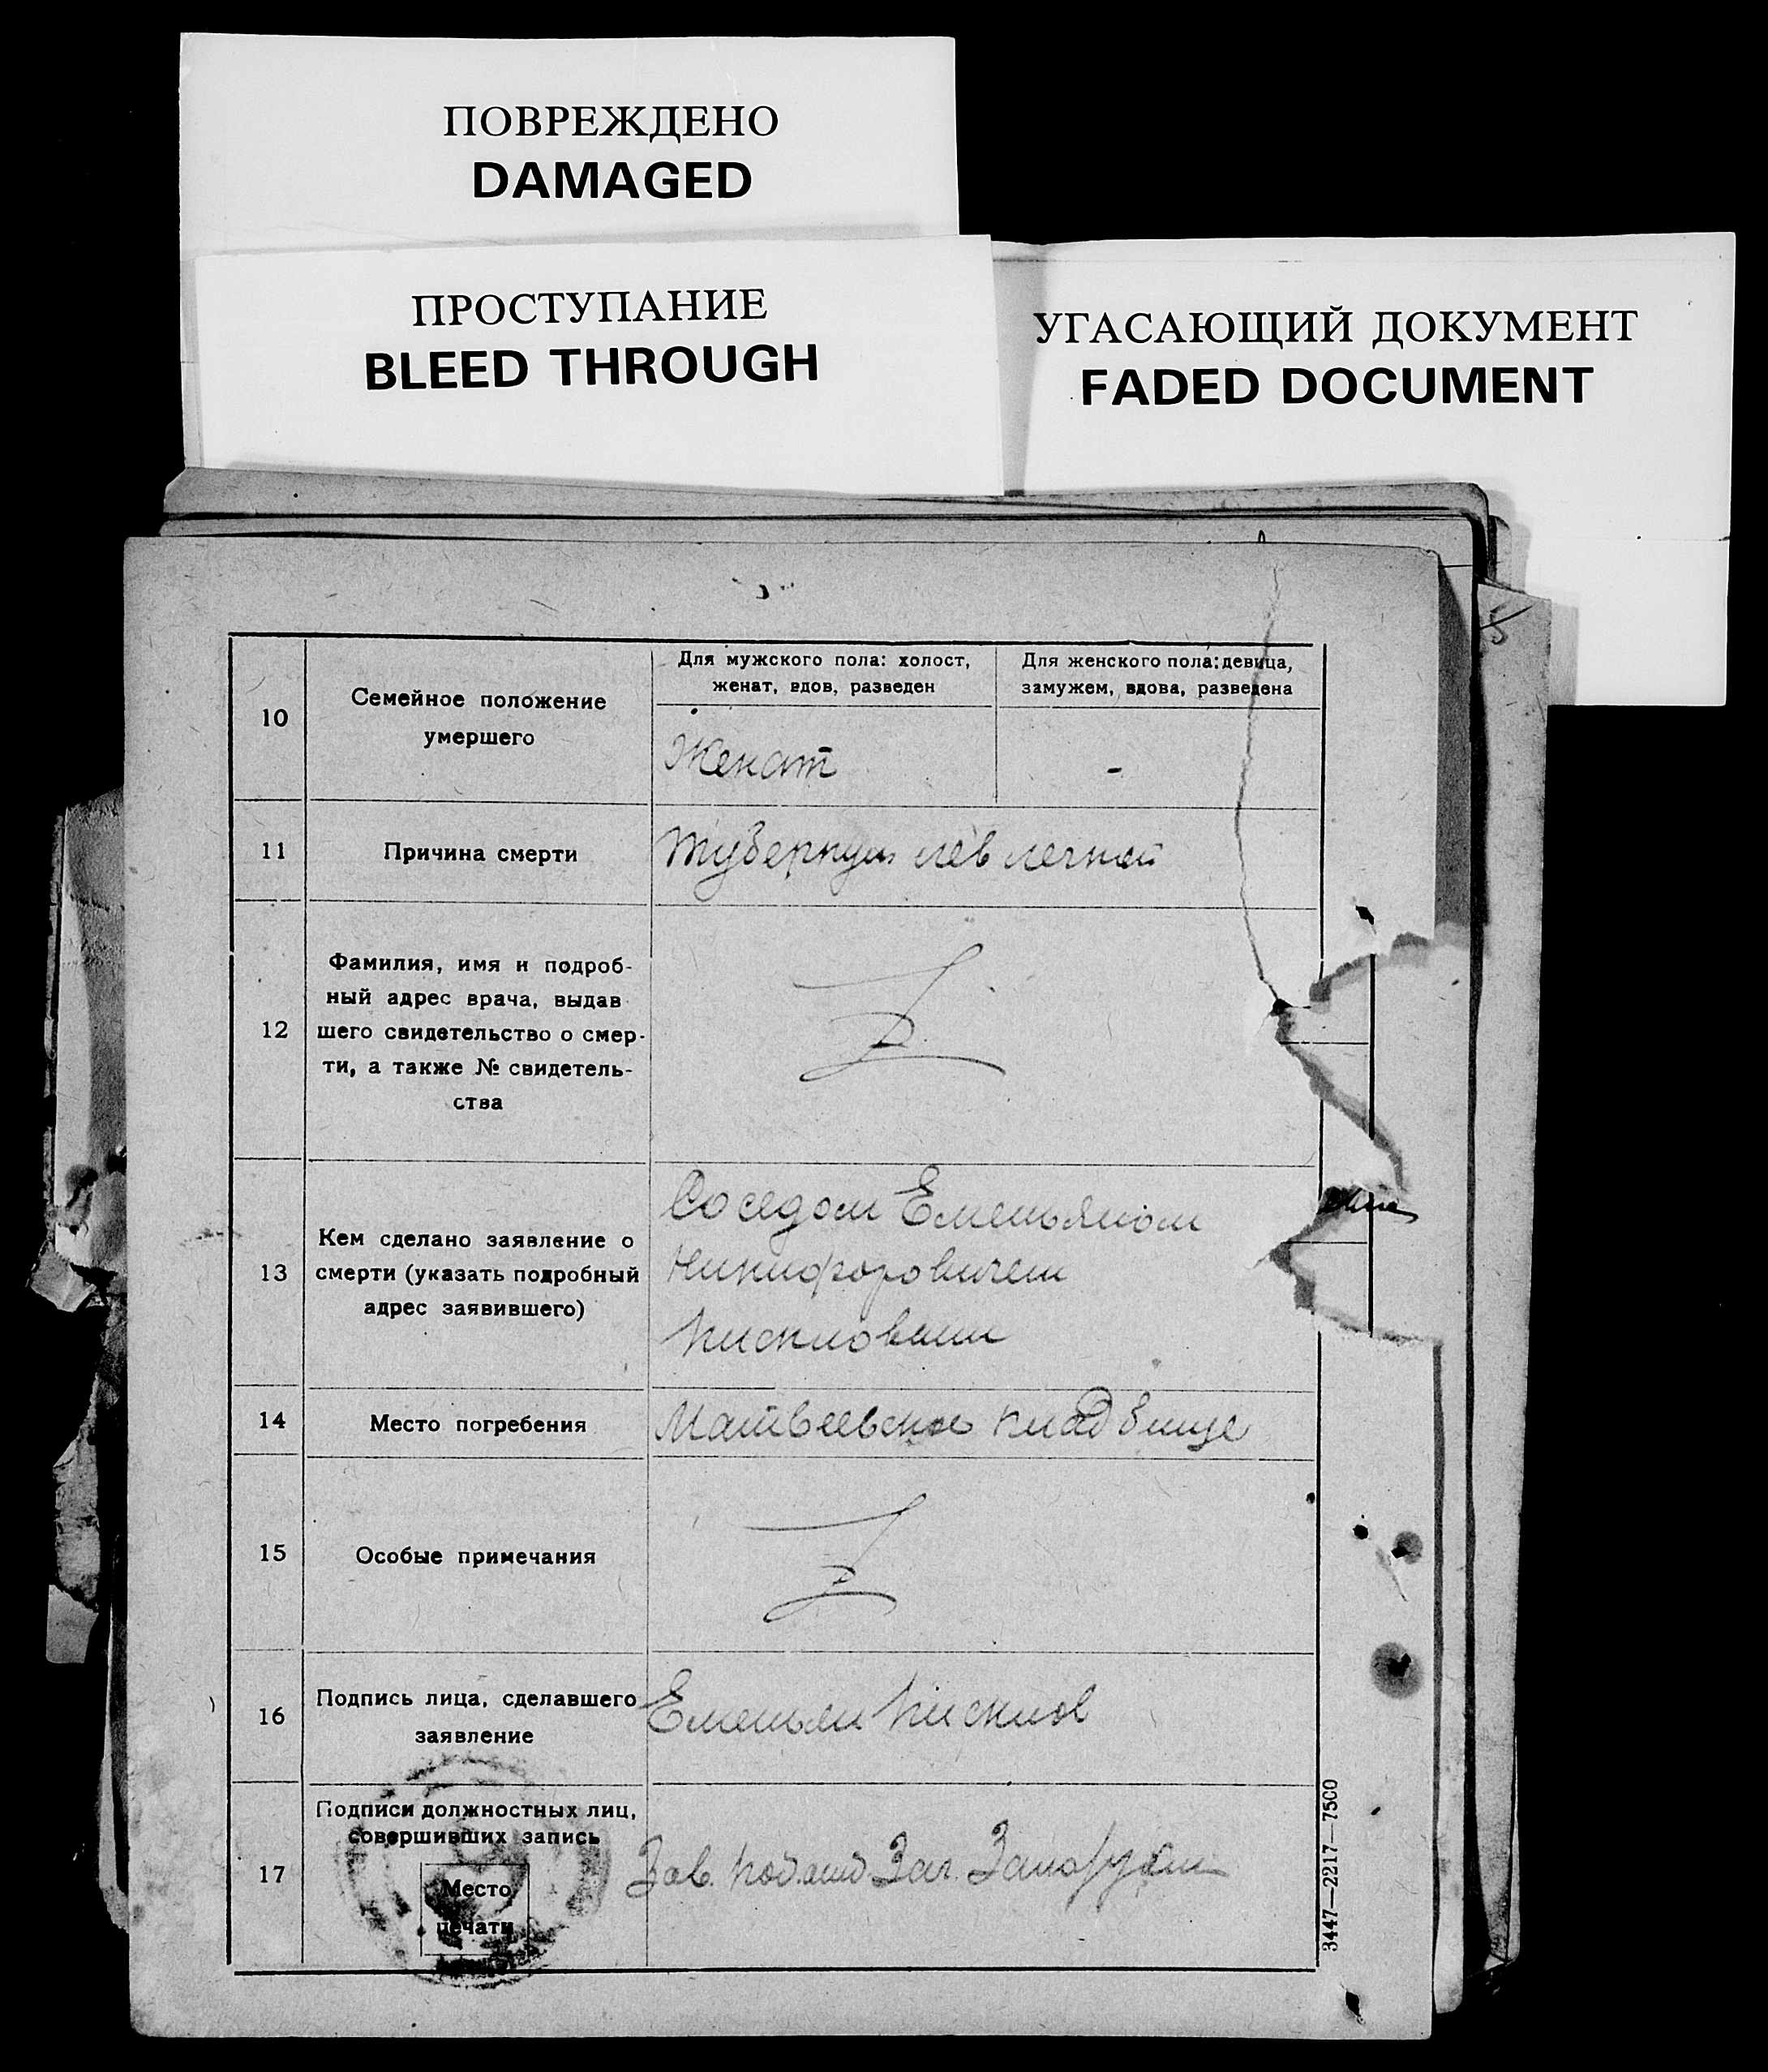 ПОВРЕЖДЕНО
DAMAGED
ПРОСТУПАНИЕ
BLEED THROUGH
УГАСАЮЩИЙ ДОКУМЕНТ
FADED DOCUMENT
10
Семейное положение
умершего
Для мужского пола: холост,
женат, вдов, разведен
Для женского пола: девица,
замужем, вдова, разведена
Женат
-
11
Причина смерти
Туберкул лев легкой
12
Фамилия, имя и подроб-
ный адрес врача, выдав
шего свидетельство о смер-
ти, а также № свидетель-
ства
13
Кем сделано заявление о
смерти (указать подробный
адрес заявившего)
Соседом Емельяном
Никифоровичем
Кисиловым
14
Место погребения
Матвеевское кладбище
15
Особые примечания
16
Подпись лица, сделавшего
заявление
Емельян Кисилов
17
Подписи должностных лиц,
совершивших запись
Место
печати
Зав.
3447—2217—7500